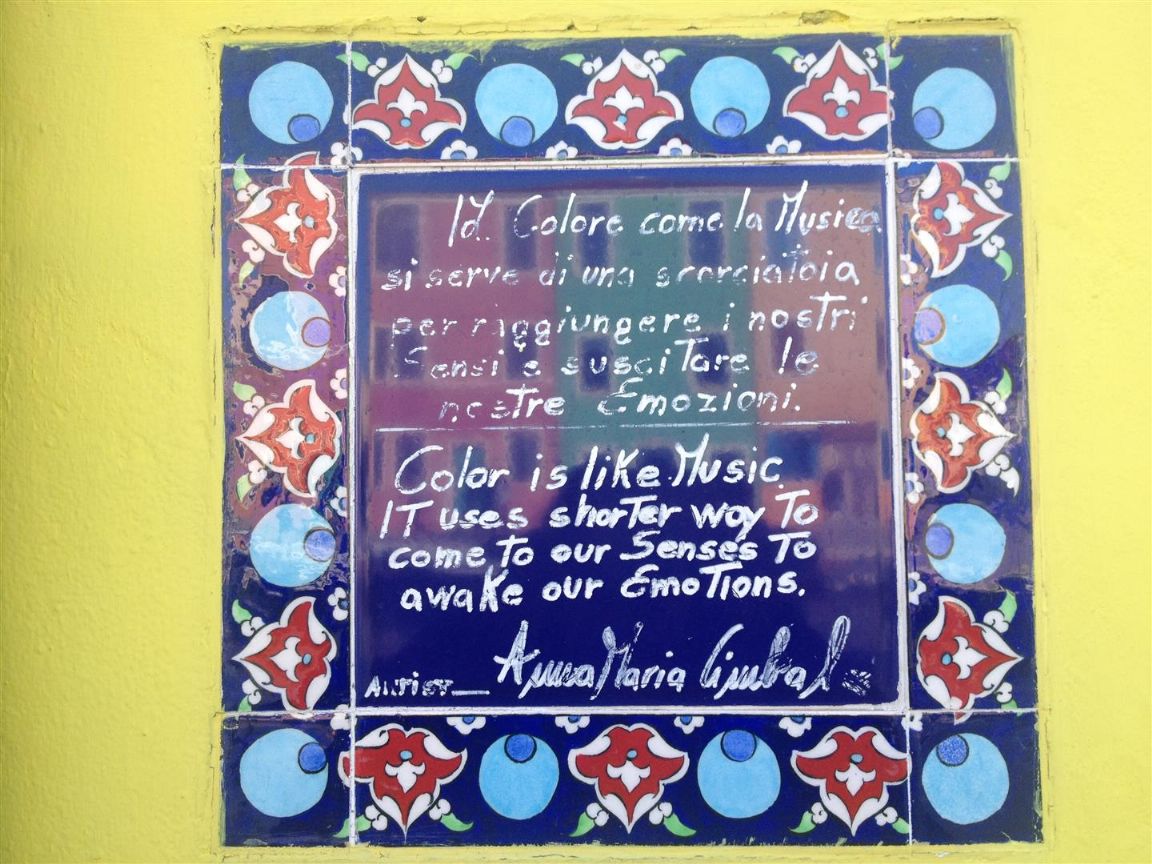 Il Colore come la Musica
si serve di una scorciatoia
per raggiungere i nostri
Sensi e suscitare le
nostre Emozioni.
Color is like Music.
IT uses shorTer way To
come to our Senses To
awake our EmoTions.
Artist_ AnnaMaria Cimbal